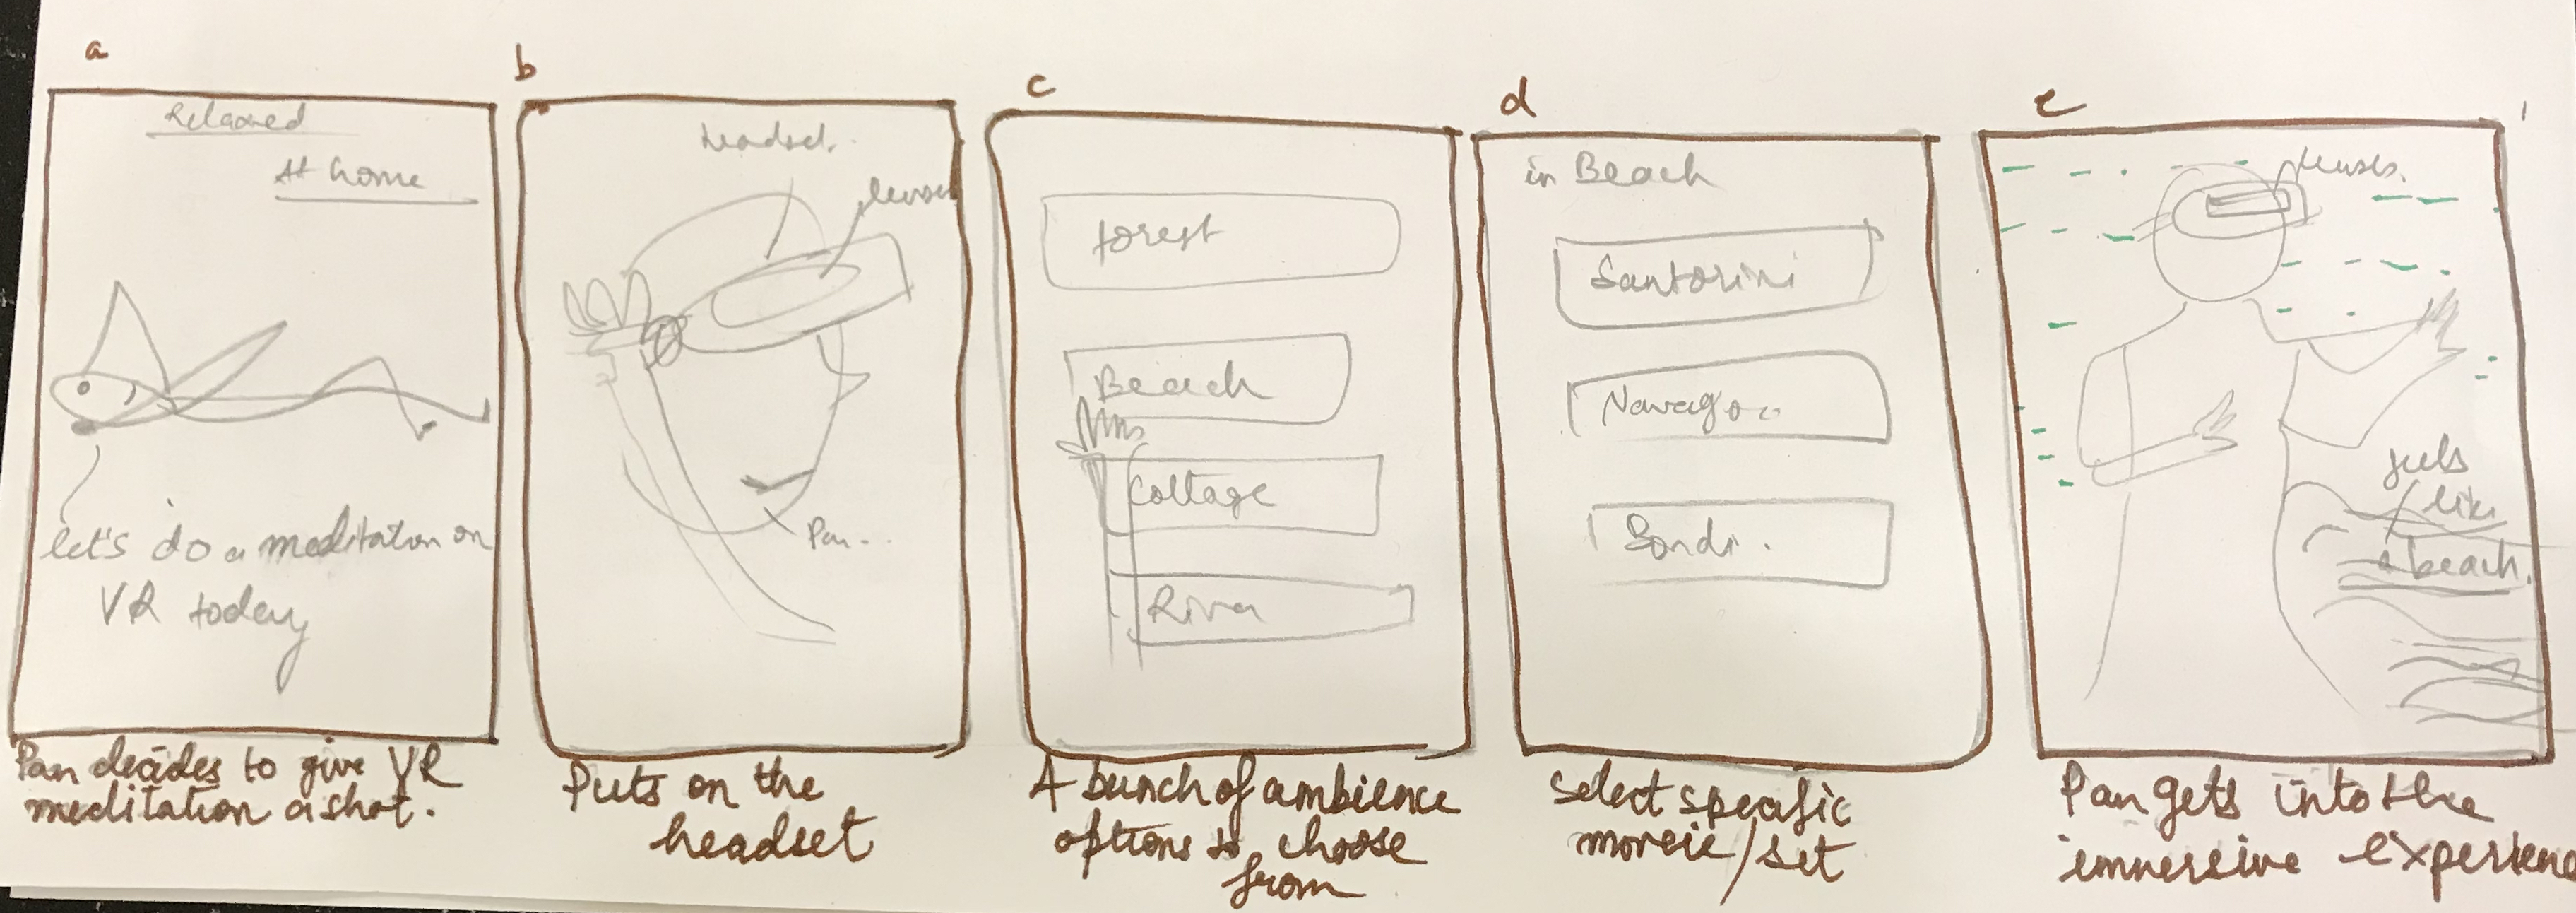 a
Relaxed
At home
let's do a meditation on
VR today
Pan decides to give VR
meditation a shot.
b
headset.
lenses
Pan...
Puts on the
headset
c
forest
Beach
Cottage
River
A bunch of ambience
options to choose
from
d
in Beach
Santorini
Bondi.
select specific
movie/set
e
lenses.
feels
like
a beach.
Pan gets into the
immersive experience